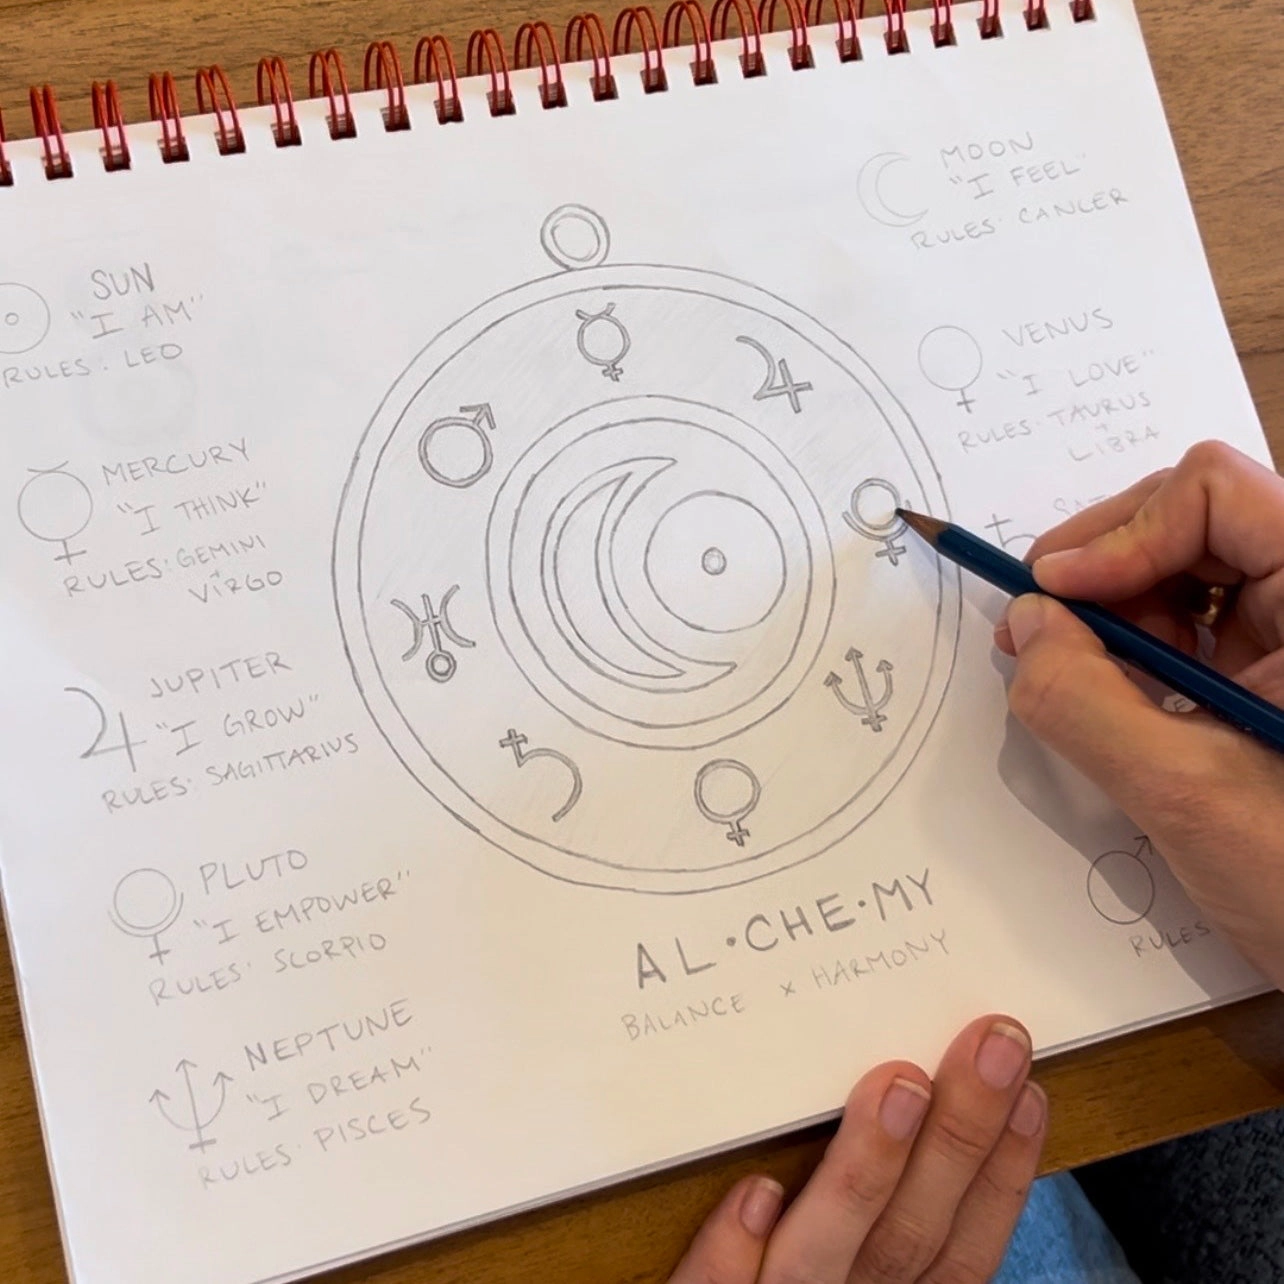 SUN
"I AM"
RULES: LEO
MERCURY
"I THINK"
RULES: GEMINI
+
VIRGO
JUPITER
"I GROW"
RULES: SAGITTARIUS
PLUTO
"I EMPOWER"
RULES: SCORPIO
NEPTUNE
"I DREAM"
RULES: PISCES
AL·CHE·MY
BALANCE x HARMONY
MOON
"I FEEL"
RULES: CANCER
VENUS
"I LOVE"
RULES: TAURUS
+
LIBRA
RULES